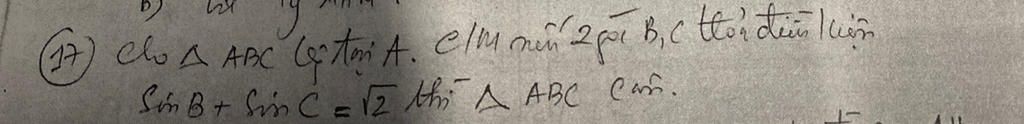 17 Cho △ ABC tại A. C/M nếu 2 góc B, C thỏa điều kiện
Sin B + Sin C = √2 thì △ ABC cân.